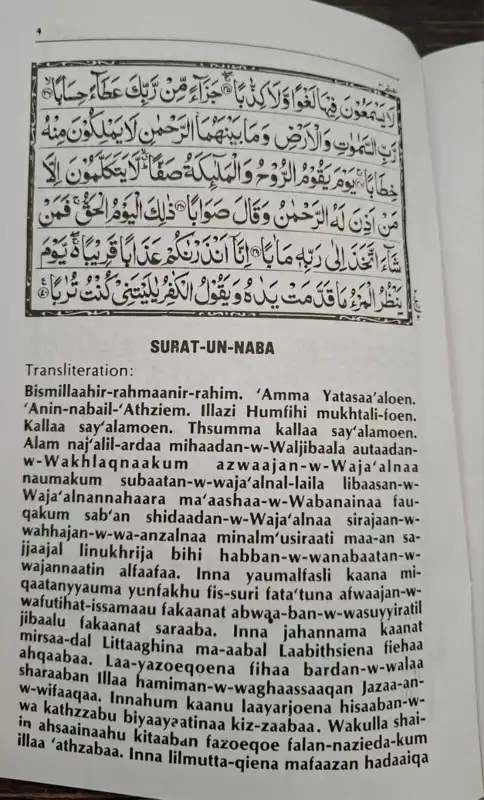 4
لَا يَسْمَعُونَ فِيهَا لَغْوًا وَّلَا كِذّٰبًا ﴿٣٥﴾ جَزَآءً مِّنْ رَّبِّكَ عَطَآءً حِسَابًا ﴿٣٦﴾
رَّبِّ السَّمٰوٰتِ وَالْاَرْضِ وَمَا بَيْنَهُمَا الرَّحْمٰنِ لَا يَمْلِكُوْنَ مِنْهُ
خِطَابًا ﴿٣٧﴾ يَوْمَ يَقُوْمُ الرُّوْحُ وَالْمَلٰٓئِكَةُ صَفًّا لَّا يَتَكَلَّمُوْنَ اِلَّا
مَنْ اَذِنَ لَهُ الرَّحْمٰنُ وَقَالَ صَوَابًا ﴿٣٨﴾ ذٰلِكَ الْيَوْمُ الْحَقُّ فَمَنْ
شَآءَ اتَّخَذَ اِلٰى رَبِّهٖ مَاٰبًا ﴿٣٩﴾ اِنَّآ اَنْذَرْنٰكُمْ عَذَابًا قَرِيْبًا يَّوْمَ
يَنْظُرُ الْمَرْءُ مَا قَدَّمَتْ يَدٰهُ وَيَقُوْلُ الْكٰفِرُ يٰلَيْتَنِيْ كُنْتُ تُرٰبًا ﴿٤٠﴾
SURAT-UN-NABA
Transliteration:
Bismillaahir-rahmaanir-rahim. ‘Amma Yatasaa’aloen.
‘Anin-nabail-‘Athziem. Illazi Humfihi mukhtali-foen.
Kallaa say‘alamoen. Thsumma kallaa say‘alamoen.
Alam naj‘alil-ardaa mihaadan-w-Waljibaala autaadan-
w-Wakhlaqnaakum azwaajan-w-Waja‘alnaa
naumakum subaatan-w-waja‘alnal-laila libaasan-w-
Waja‘alnannahaara ma‘aashaa-w-Wabanainaa fau-
qakum sab‘an shidaadan-w-Waja‘alnaa sirajaan-w-
wahhajan-w-wa-anzalnaa minalm‘usiraati maa-an sa-
jjaajal linukhrija bihi habban-w-wanabaatan-w-
wajannaatin alfaafaa. Inna yaumalfasli kaana mi-
qaatanyyauma yunfakhu fis-suri fata‘tuna afwaajan-w-
wafutihat-issamaau fakaanat abwaa-ban-w-wasuyyiratil
jibaalu fakaanat saraaba. Inna jahannama kaanat
mirsaa-dal Littaaghina ma-aabal Laabithsiena fiehaa
ahqaabaa. Laa-yazoeqoena fihaa bardan-w-walaa
sharaaban Illaa hamiman-w-waghaassaaqan Jazaa-an-
w-wifaaqaa. Innahum kaanu laayarjoena hisaaban-w-
wa kathzzabu biyaayaatinaa kiz-zaabaa. Wakulla shai-
in ahsaainaahu kitaaban fazoeqoe falan-nazieda-kum
illaa ‘athzabaa. Inna lilmutta-qiena mafaazan hadaaiqa